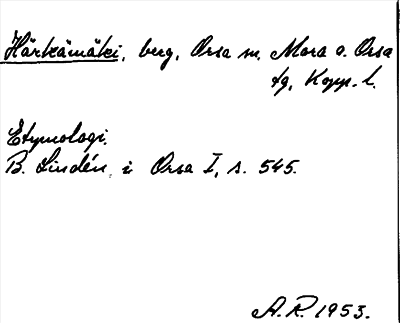 Härkämäki, berg, Orsa sn, Mora o. Orsa
tg, Kopp. l.
Etymologi.
B. Lindén i Orsa I, s. 545.
A.R. 1953.